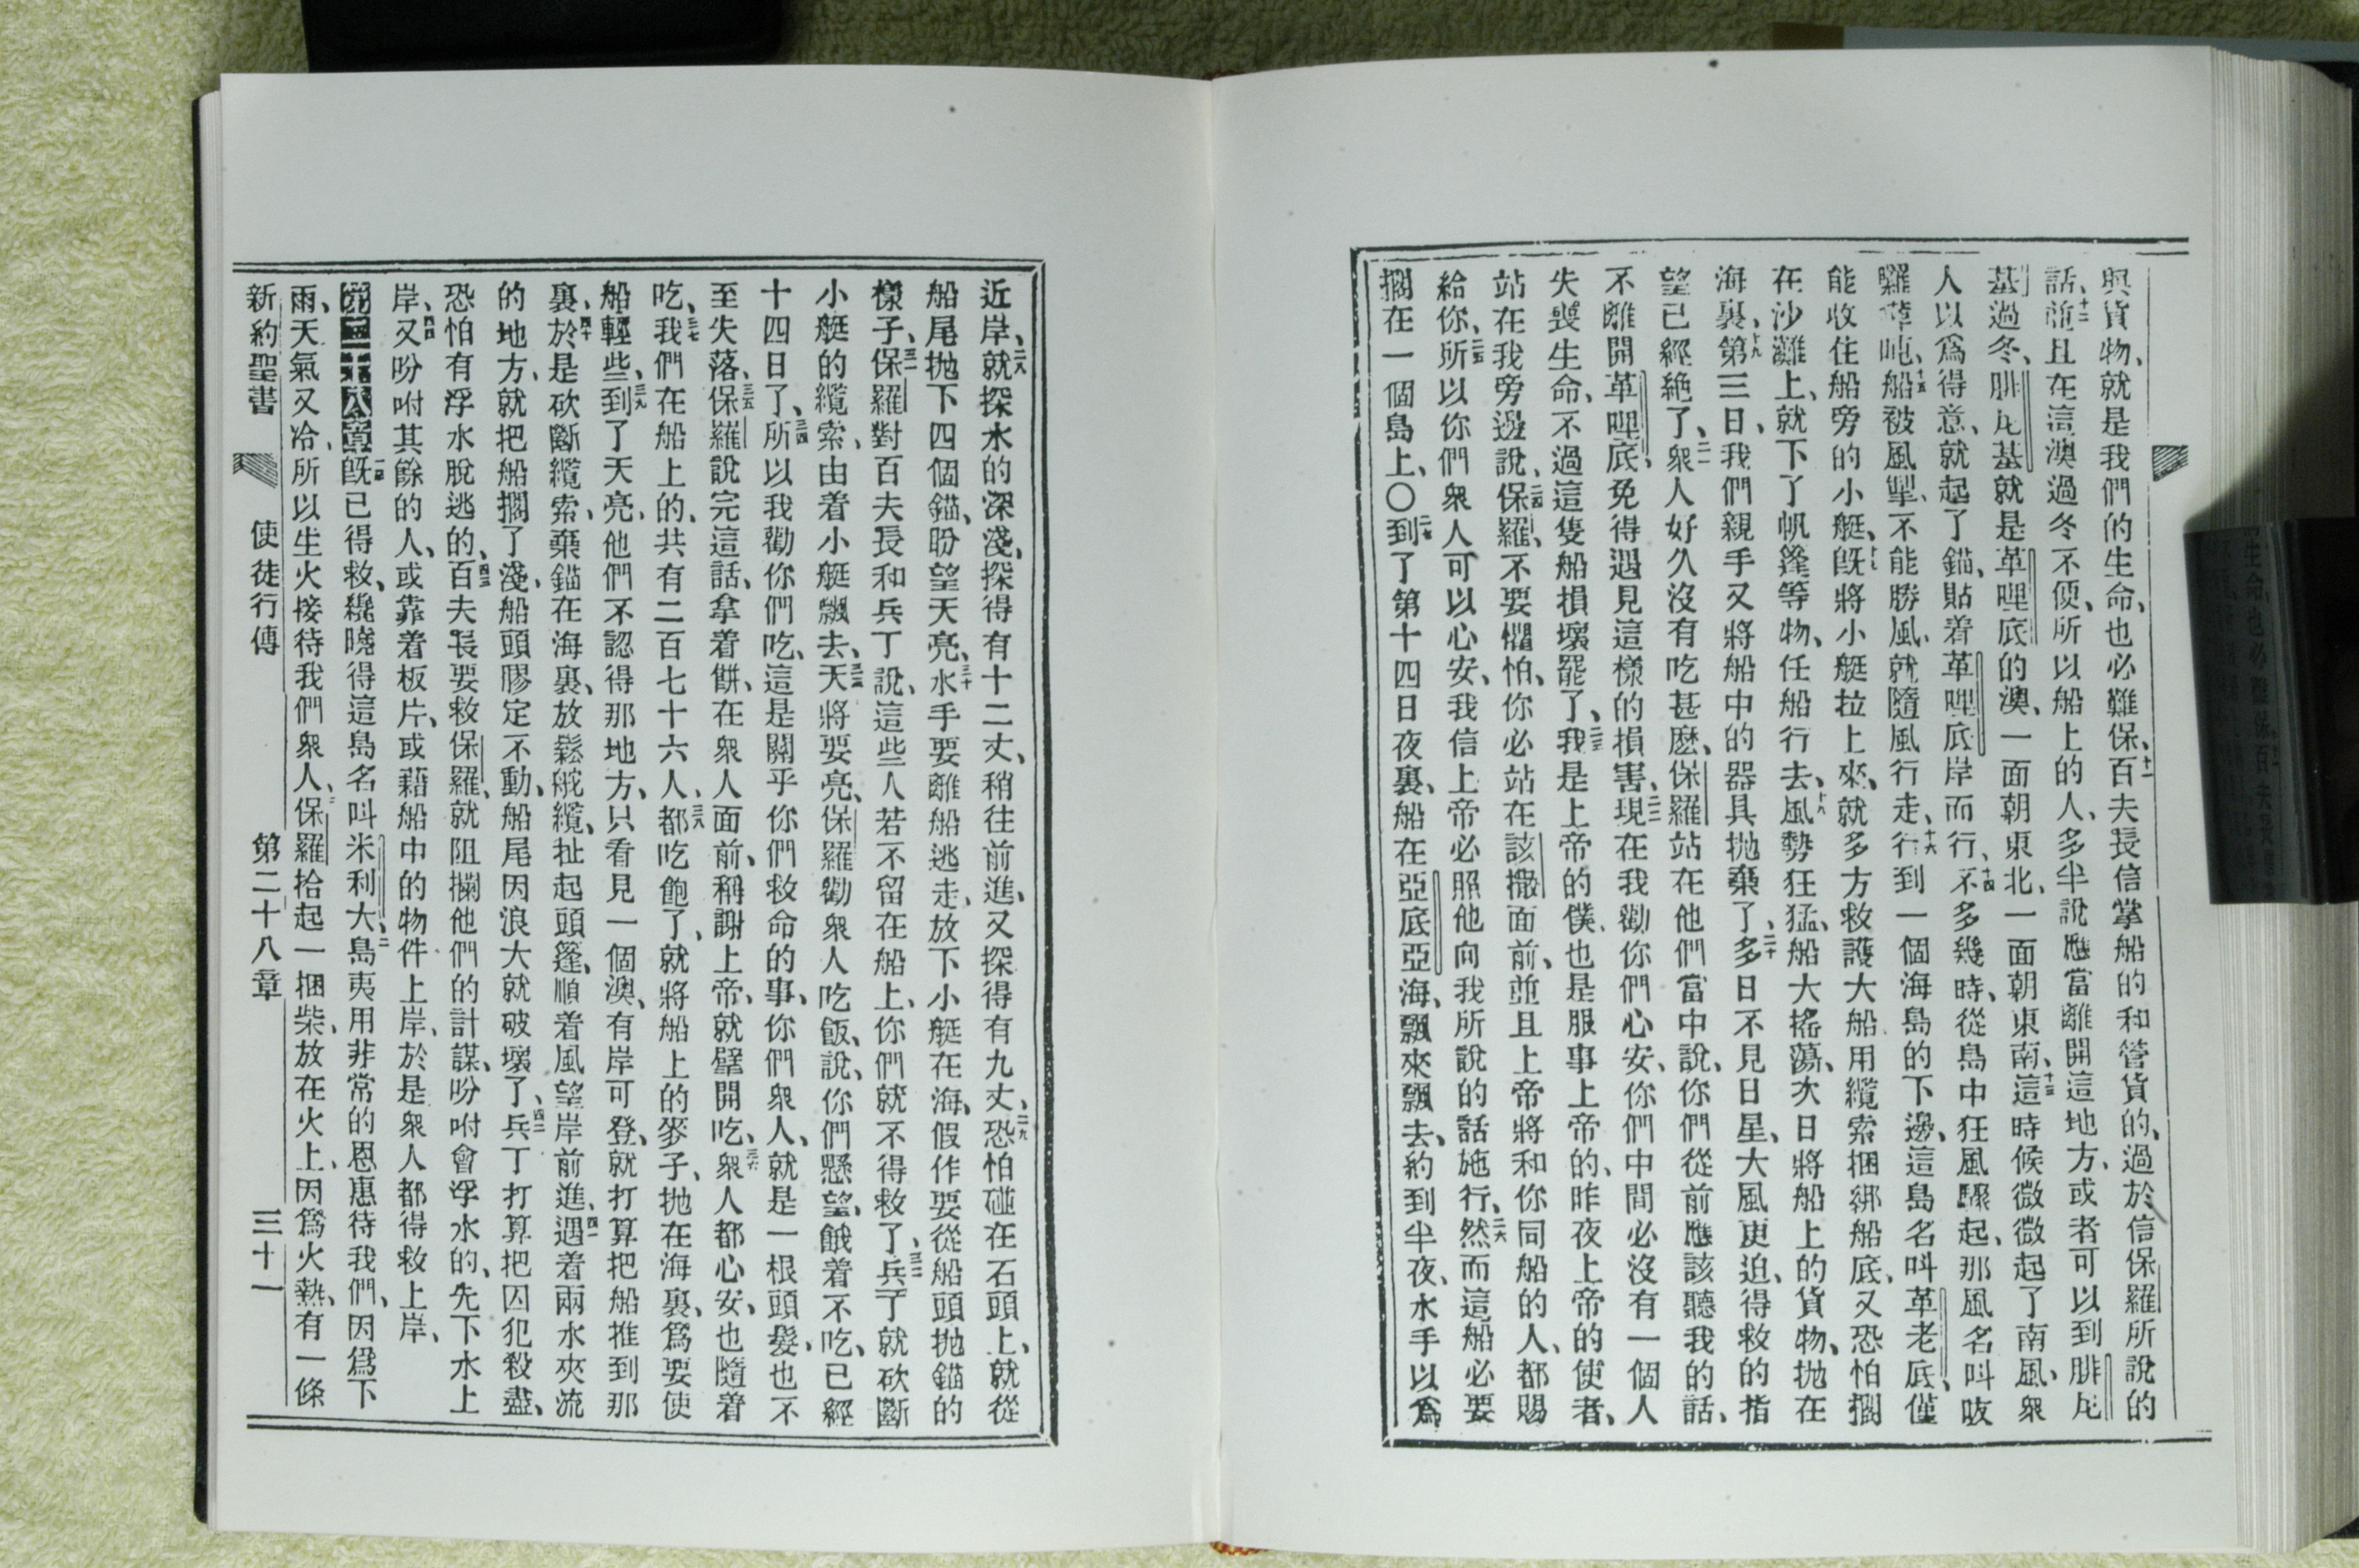 與貨物、就是我們的生命、也必難保、十一百夫長信掌船的和管貨的、過於信保羅所說的
話、十二並且在這澳過冬不便、所以船上的人、多半說應當離開這地方、或者可以到腓尼
基過冬、腓尼基就是革哩底的澳、一面朝東北、一面朝東南、十三這時候微微起了南風、衆
人以爲得意、就起了錨、貼着革哩底岸而行、十四不多幾時、從島中狂風驟起、那風名叫友
羅革屯、十五船被風揧、不能勝風、就隨風行走、十六行到一個海島的下邊、這島名叫革老底、僅
能收住船旁的小艇、十七旣將小艇拉上來、就多方救護大船、用纜索捆綁船底、又恐怕擱
在沙灘上、就下了帆篷等物、任船行去、十八風勢狂猛、船大搖蕩、次日將船上的貨物、抛在
海裏、十九第三日、我們親手又將船中的器具抛棄了、二十多日不見日星、大風更迫、得救的指
望已經絶了、二一衆人好久沒有吃甚麽、保羅站在他們當中說、你們從前應該聽我的話、
不離開革哩底、免得遇見這樣的損害、二二現在我勸你們心安、你們中間必沒有一個人
失喪生命、不過這隻船損壞罷了、二三我是上帝的僕、也是服事上帝的、昨夜上帝的使者、
站在我旁邊說、二四保羅、不要懼怕、你必站在該撒面前、並且上帝將和你同船的人、都賜
給你、二五所以你們衆人可以心安、我信上帝必照他向我所說的話施行、二六然而這船必要
擱在一個島上、○二七到了第十四日夜裏、船在亞底亞海、飄來飄去、約到半夜、水手以爲
近岸、二八就探水的深淺、探得有十二丈、稍往前進、又探得有九丈、二九恐怕碰在石頭上、就從
船尾抛下四個錨、盼望天亮、三十水手要離船逃走、放下小艇在海、假作要從船頭抛錨的
樣子、三一保羅對百夫長和兵丁說、這些人若不留在船上、你們就不得救了、三二兵丁就砍斷
小艇的纜索、由着小艇飄去、三三天將要亮、保羅勸衆人吃飯、說、你們懸望、餓着不吃、已經
十四日了、三四所以我勸你們吃、這是關乎你們救命的事、你們衆人、就是一根頭髮、也不
至失落、三五保羅說完這話、拿着餅、在衆人面前、稱謝上帝、就擘開吃、三六衆人都心安、也隨着
吃、三七我們在船上的、共有二百七十六人、三八都吃飽了、就將船上的麥子、抛在海裏、爲要使
船輕些、三九到了天亮、他們不認得那地方、只看見一個澳、有岸可登、就打算把船推到那
裏、四十於是砍斷纜索、棄錨在海裏、放鬆舵纜、扯起頭篷、順着風望岸前進、四一遇着兩水夾流
的地方、就把船擱了淺、船頭膠定不動、船尾因浪大就破壞了、四二兵丁打算把囚犯殺盡、
恐怕有浮水脫逃的、四三百夫長要救保羅、就阻攔他們的計謀、吩咐會浮水的、先下水上
岸、四四又吩咐其餘的人、或靠着板片、或藉船中的物件上岸、於是衆人都得救上岸、
第二十八章一旣已得救、纔曉得這島名叫米利大、二島夷用非常的恩惠待我們、因爲下
雨、天氣又冷、所以生火接待我們衆人、三保羅拾起一捆柴、放在火上、因爲火熱、有一條
新約聖書 使徒行傳 第二十八章 三十一